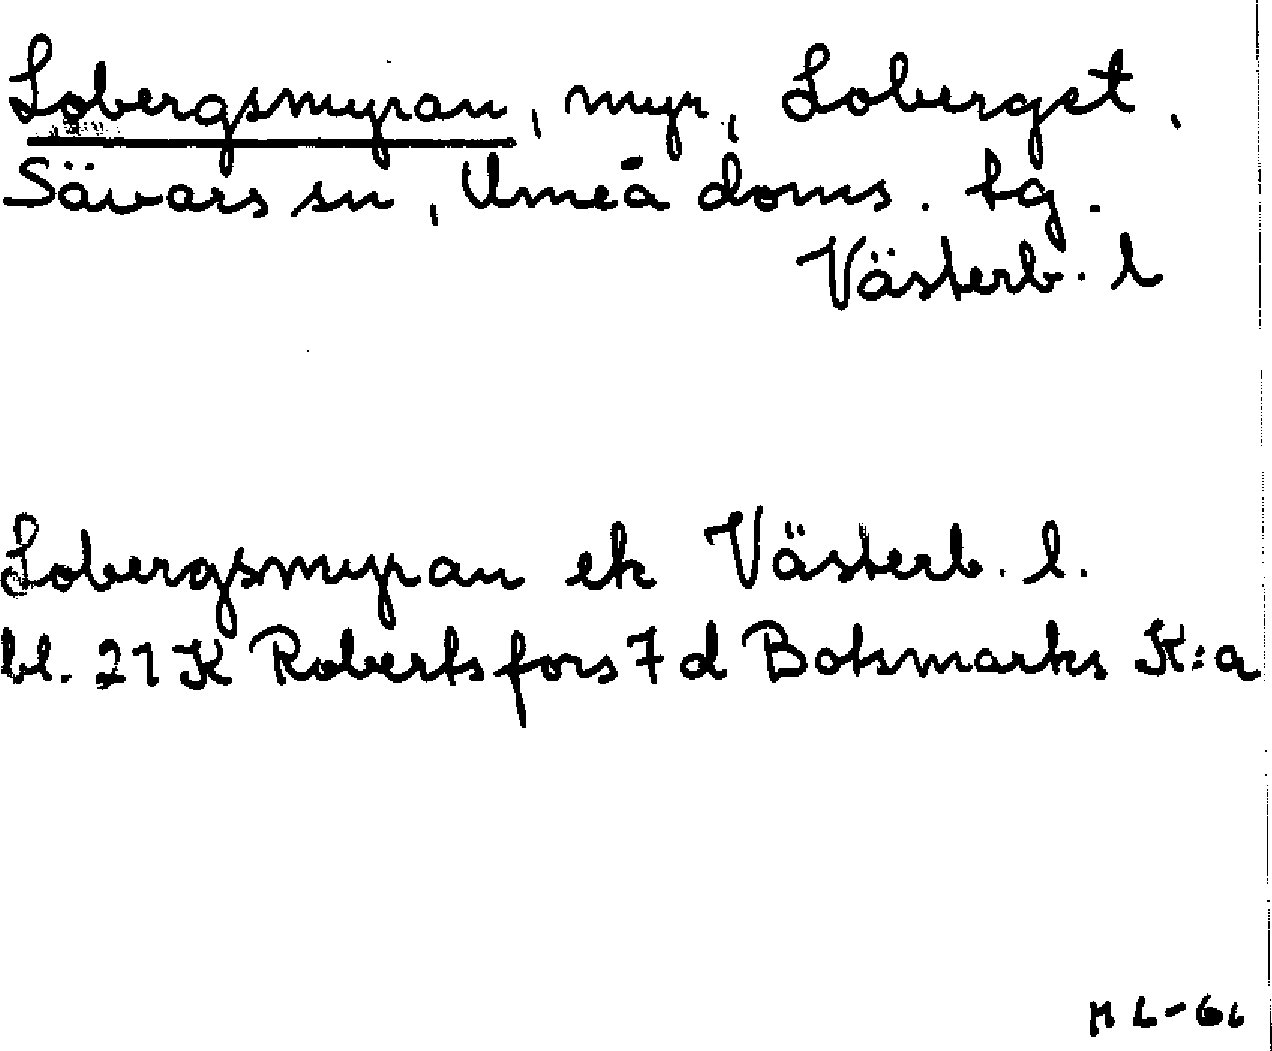 Lobergsmyran, myr, Loberget,
Sävars sn, Umeå doms. tg.
Västerb. l
Lobergsmyran ek Västerb. l.
bl. 21 K Robertsfors 7 d Botsmarks K:a